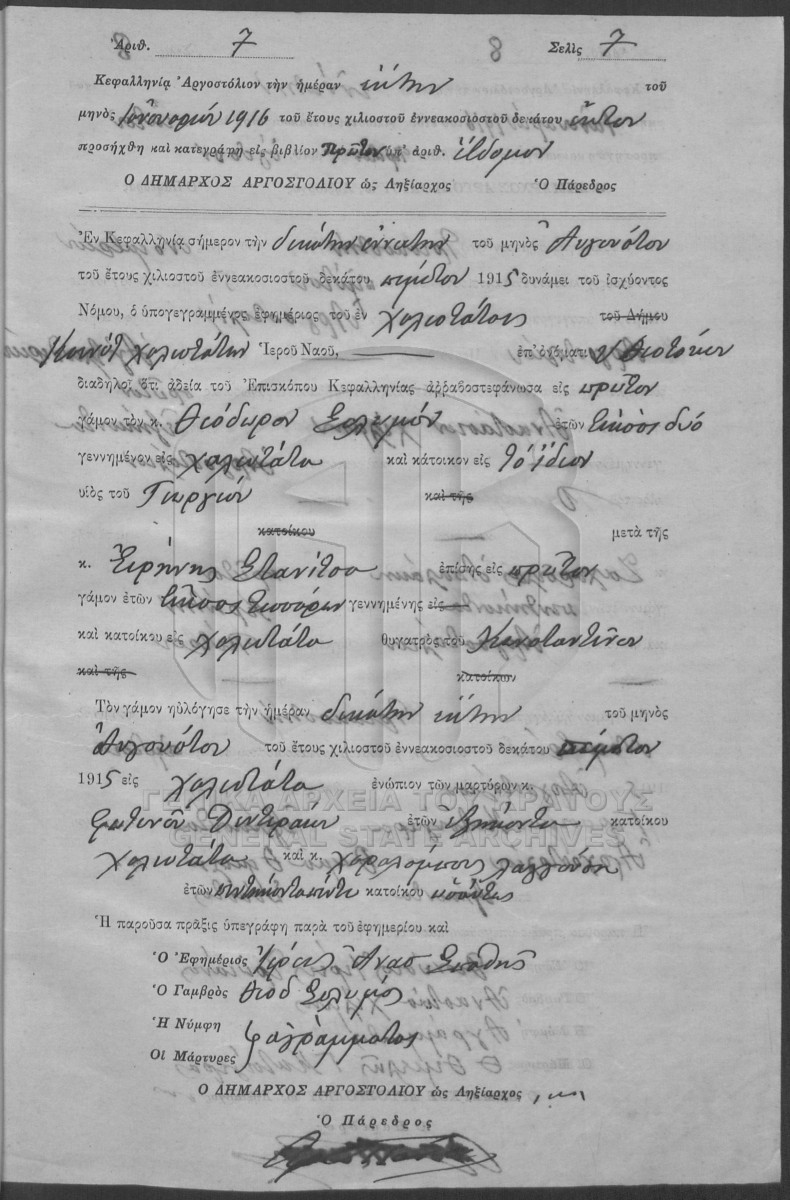 Ἀριθ. 7 Σελὶς 7
Κεφαλληνίᾳ Ἀργοστόλιον τὴν ἡμέραν ἕκτην τοῦ
μηνὸς Ἰανουαρίου 1916 τοῦ ἔτους χιλιοστοῦ ἐννεακοσιοστοῦ δεκάτου ἕκτου
προσήχθη καὶ κατεγράφη εἰς βιβλίον Πρῶτον ὑπ' ἀριθ. ἕβδομον
Ὁ ΔΗΜΑΡΧΟΣ ΑΡΓΟΣΤΟΛΙΟΥ ὡς Ληξίαρχος Ὁ Πάρεδρος
Ἐν Κεφαλληνίᾳ σήμερον τὴν δεκάτην ἐννάτην τοῦ μηνὸς Αὐγούστου
τοῦ ἔτους χιλιοστοῦ ἐννεακοσιοστοῦ δεκάτου πέμπτου 1915 δυνάμει τοῦ ἰσχύοντος
Νόμου, ὁ ὑπογεγραμμένος ἐφημέριος τοῦ ἐν Χαλιωτάτοις τοῦ Δήμου
Κοινότ Χαλιωτάτων Ἱεροῦ Ναοῦ, ἐπ' ὀνόματι Θεοτόκου
διαδηλοῖ ὅτι ἀδείᾳ τοῦ Ἐπισκόπου Κεφαλληνίας ἀρραβοστεφάνωσα εἰς πρῶτον
γάμον τὸν κ. Θεόδωρον Σολωμόν ἐτῶν εἴκοσι δύο
γεννημένον εἰς Χαλιωτάτα καὶ κάτοικον εἰς τὸ ἴδιον
υἱὸς τοῦ Γεωργίου καὶ τῆς
κατοίκου μετὰ τῆς
κ. Εἰρήνης Στανίτσα ἐπίσης εἰς πρῶτον
γάμον ἐτῶν εἴκοσι τεσσάρων γεννημένης εἰς
καὶ κατοίκου εἰς Χαλιωτάτα θυγατρὸς τοῦ Κωνσταντίνου
καὶ τῆς κατοίκων
Τὸν γάμον ηὐλόγησε τὴν ἡμέραν δεκάτην ἕκτην τοῦ μηνὸς
Αὐγούστου τοῦ ἔτους χιλιοστοῦ ἐννεακοσιοστοῦ δεκάτου πέμπτου
1915 εἰς Χαλιωτάτα ἐνώπιον τῶν μαρτύρων κ.
Φωτεινοῦ ἐτῶν ἑξήκοντα κατοίκου
Χαλιωτάτα καὶ κ. Χαραλάμπους
ἐτῶν πεντήκοντα πέντε κατοίκου ὡσαύτως
Ἡ παροῦσα πρᾶξις ὑπεγράφη παρὰ τοῦ ἐφημερίου καὶ
Ὁ Ἐφημέριος Ἱερεὺς Ἀνασ
Ὁ Γαμβρὸς Θεόδ Σολωμός
Ἡ Νύμφη ἀγράμματος
Οἱ Μάρτυρες
Ὁ ΔΗΜΑΡΧΟΣ ΑΡΓΟΣΤΟΛΙΟΥ ὡς Ληξίαρχος
Ὁ Πάρεδρος
ΓΕΝΙΚΑ ΑΡΧΕΙΑ ΤΟΥ ΚΡΑΤΟΥΣ
GENERAL STATE ARCHIVES